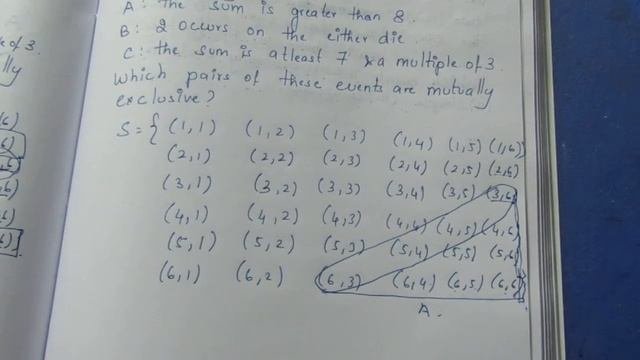 A: the sum is greater than 8.
B: 2 occurs on the either die
C: the sum is atleast 7 & a multiple of 3.
which pairs of these events are mutually
exclusive?
S = { (1,1) (1,2) (1,3) (1,4) (1,5) (1,6)
(2,1) (2,2) (2,3) (2,4) (2,5) (2,6)
(3,1) (3,2) (3,3) (3,4) (3,5) (3,6)
(4,1) (4,2) (4,3) (4,4) (4,5) (4,6)
(5,1) (5,2) (5,3) (5,4) (5,5) (5,6)
(6,1) (6,2) (6,3) (6,4) (6,5) (6,6)
A.